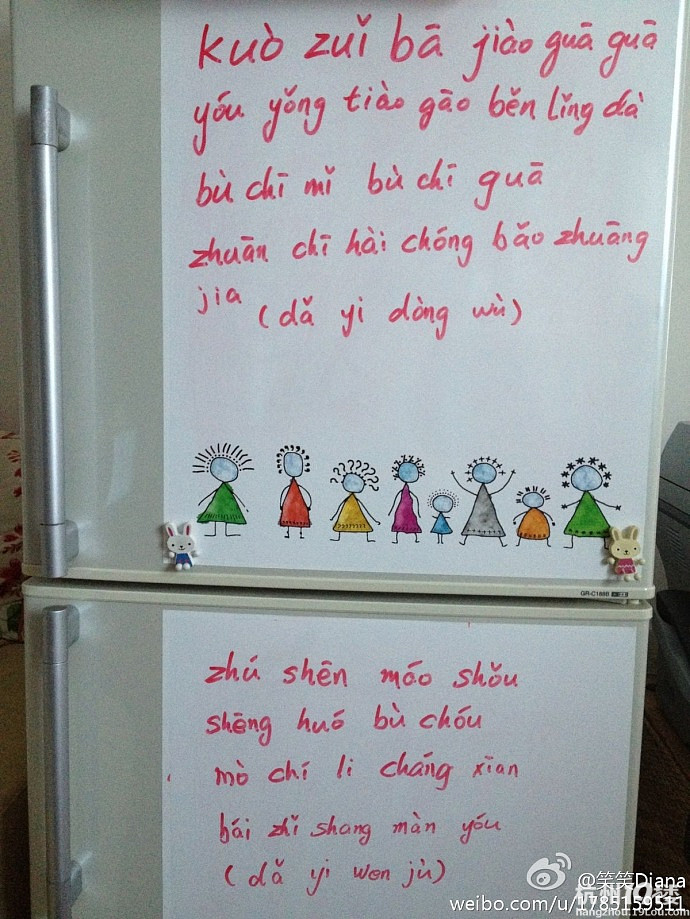 kuò zuǐ bā jiào guā guā
yóu yǒng tiào gāo běn lǐng dà
bù chī mǐ bù chī guā
zhuān chī hài chóng bǎo zhuāng
jia (dǎ yi dòng wù)
zhú shēn máo shǒu
shēng huó bù chóu
mò chí li cháng xian
bái zhǐ shang màn yóu
(dǎ yi wen jù)
@笑笑Diana
weibo.com/u/1785159511